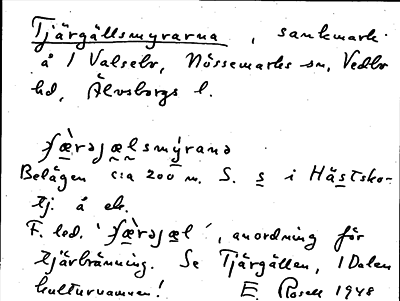 Tjärgällsmyrarna, sankmark
å 1 Valsebo, Nössemarks sn, Vedbo
hd, Älvsborgs l.
Belägen c:a 200 m. S. s i Hästsko-
tj å ek.
F. led. ', anordning för
tjärbränning. Se Tjärgällen, 1 Dalen
kulturnamnen! E. Rosell 1948